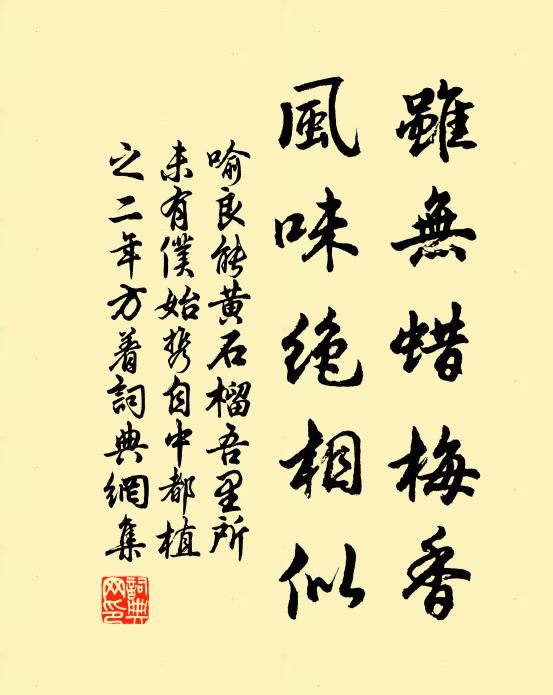 雖無蜡梅香
風味絶相似
喻良能黄石榴吾里所
未有僕始携自中都植
之二年方着詞典網集
詞典網印